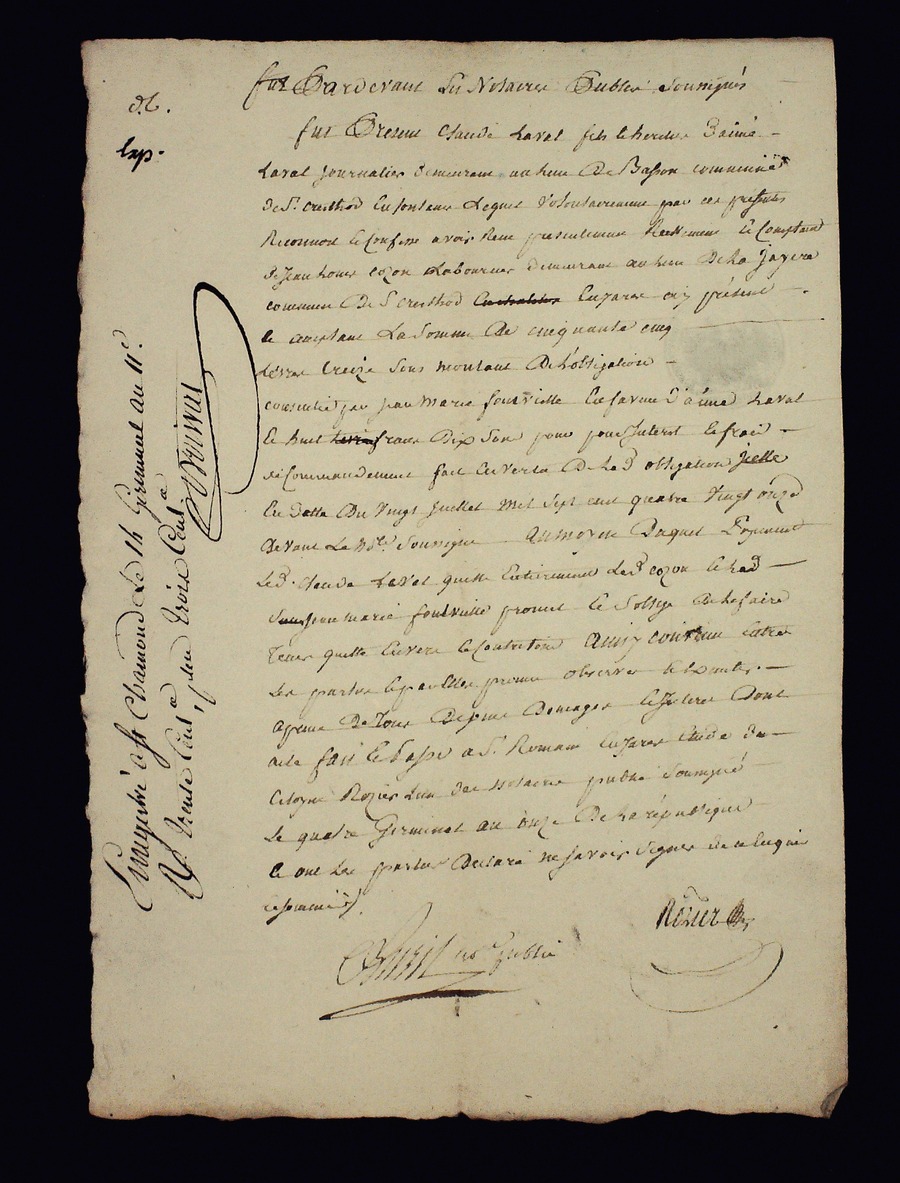 d.l.
exp.
Pardevant Les Notaires Publics Soussignés
fut Present Claude Laval fils et heritier D'aimé
Laval journalier demeurant au lieu De Basson commune
de St. cristhod En fontane Lequel Volontairement par ces presentes
Reconnoit et Confesse avoir Reçu presentement Reellement et Comptant
de Jean Louis cozon Laboureur demeurant au lieu De La jayere
commune De St cristhod En jarez icy présent
et acceptant La Somme De cinquante cinq
Livres treize Sous montant De L'obligation
consentie par jean Marie fontvielle En faveur D'aimé Laval
et huit francs Dix Sous pour Interet et frais
de Commandement fait En vertu De La de obligation jcelle
En Datte Du Vingt juillet Mil Sept cent quatre Vingt onze
devant Le Nre. Soussigné Aumoyen Duquel Payement
Led. Claude Laval quitte Entierement Led cozon et Led
jean marie fontvielle promet et S'oblige De Les faire
Tenir quitte Envers et Contre tous Ainsy convenu Entre
Les parties promis observer
apeine De Tous Depens Domages et Interets Dont
acte fait et Passé a St. Romain En Jarez Etude du
Citoyen Rozier L'un des Notaires publics Soussigné
Le quatre Germinal an onze De La république
et ont Les parties Declaré ne Savoir Signer de ce Enquis
not. public
Rozier
Enregistré a St Chamond Le 14 Germinal an 11e.